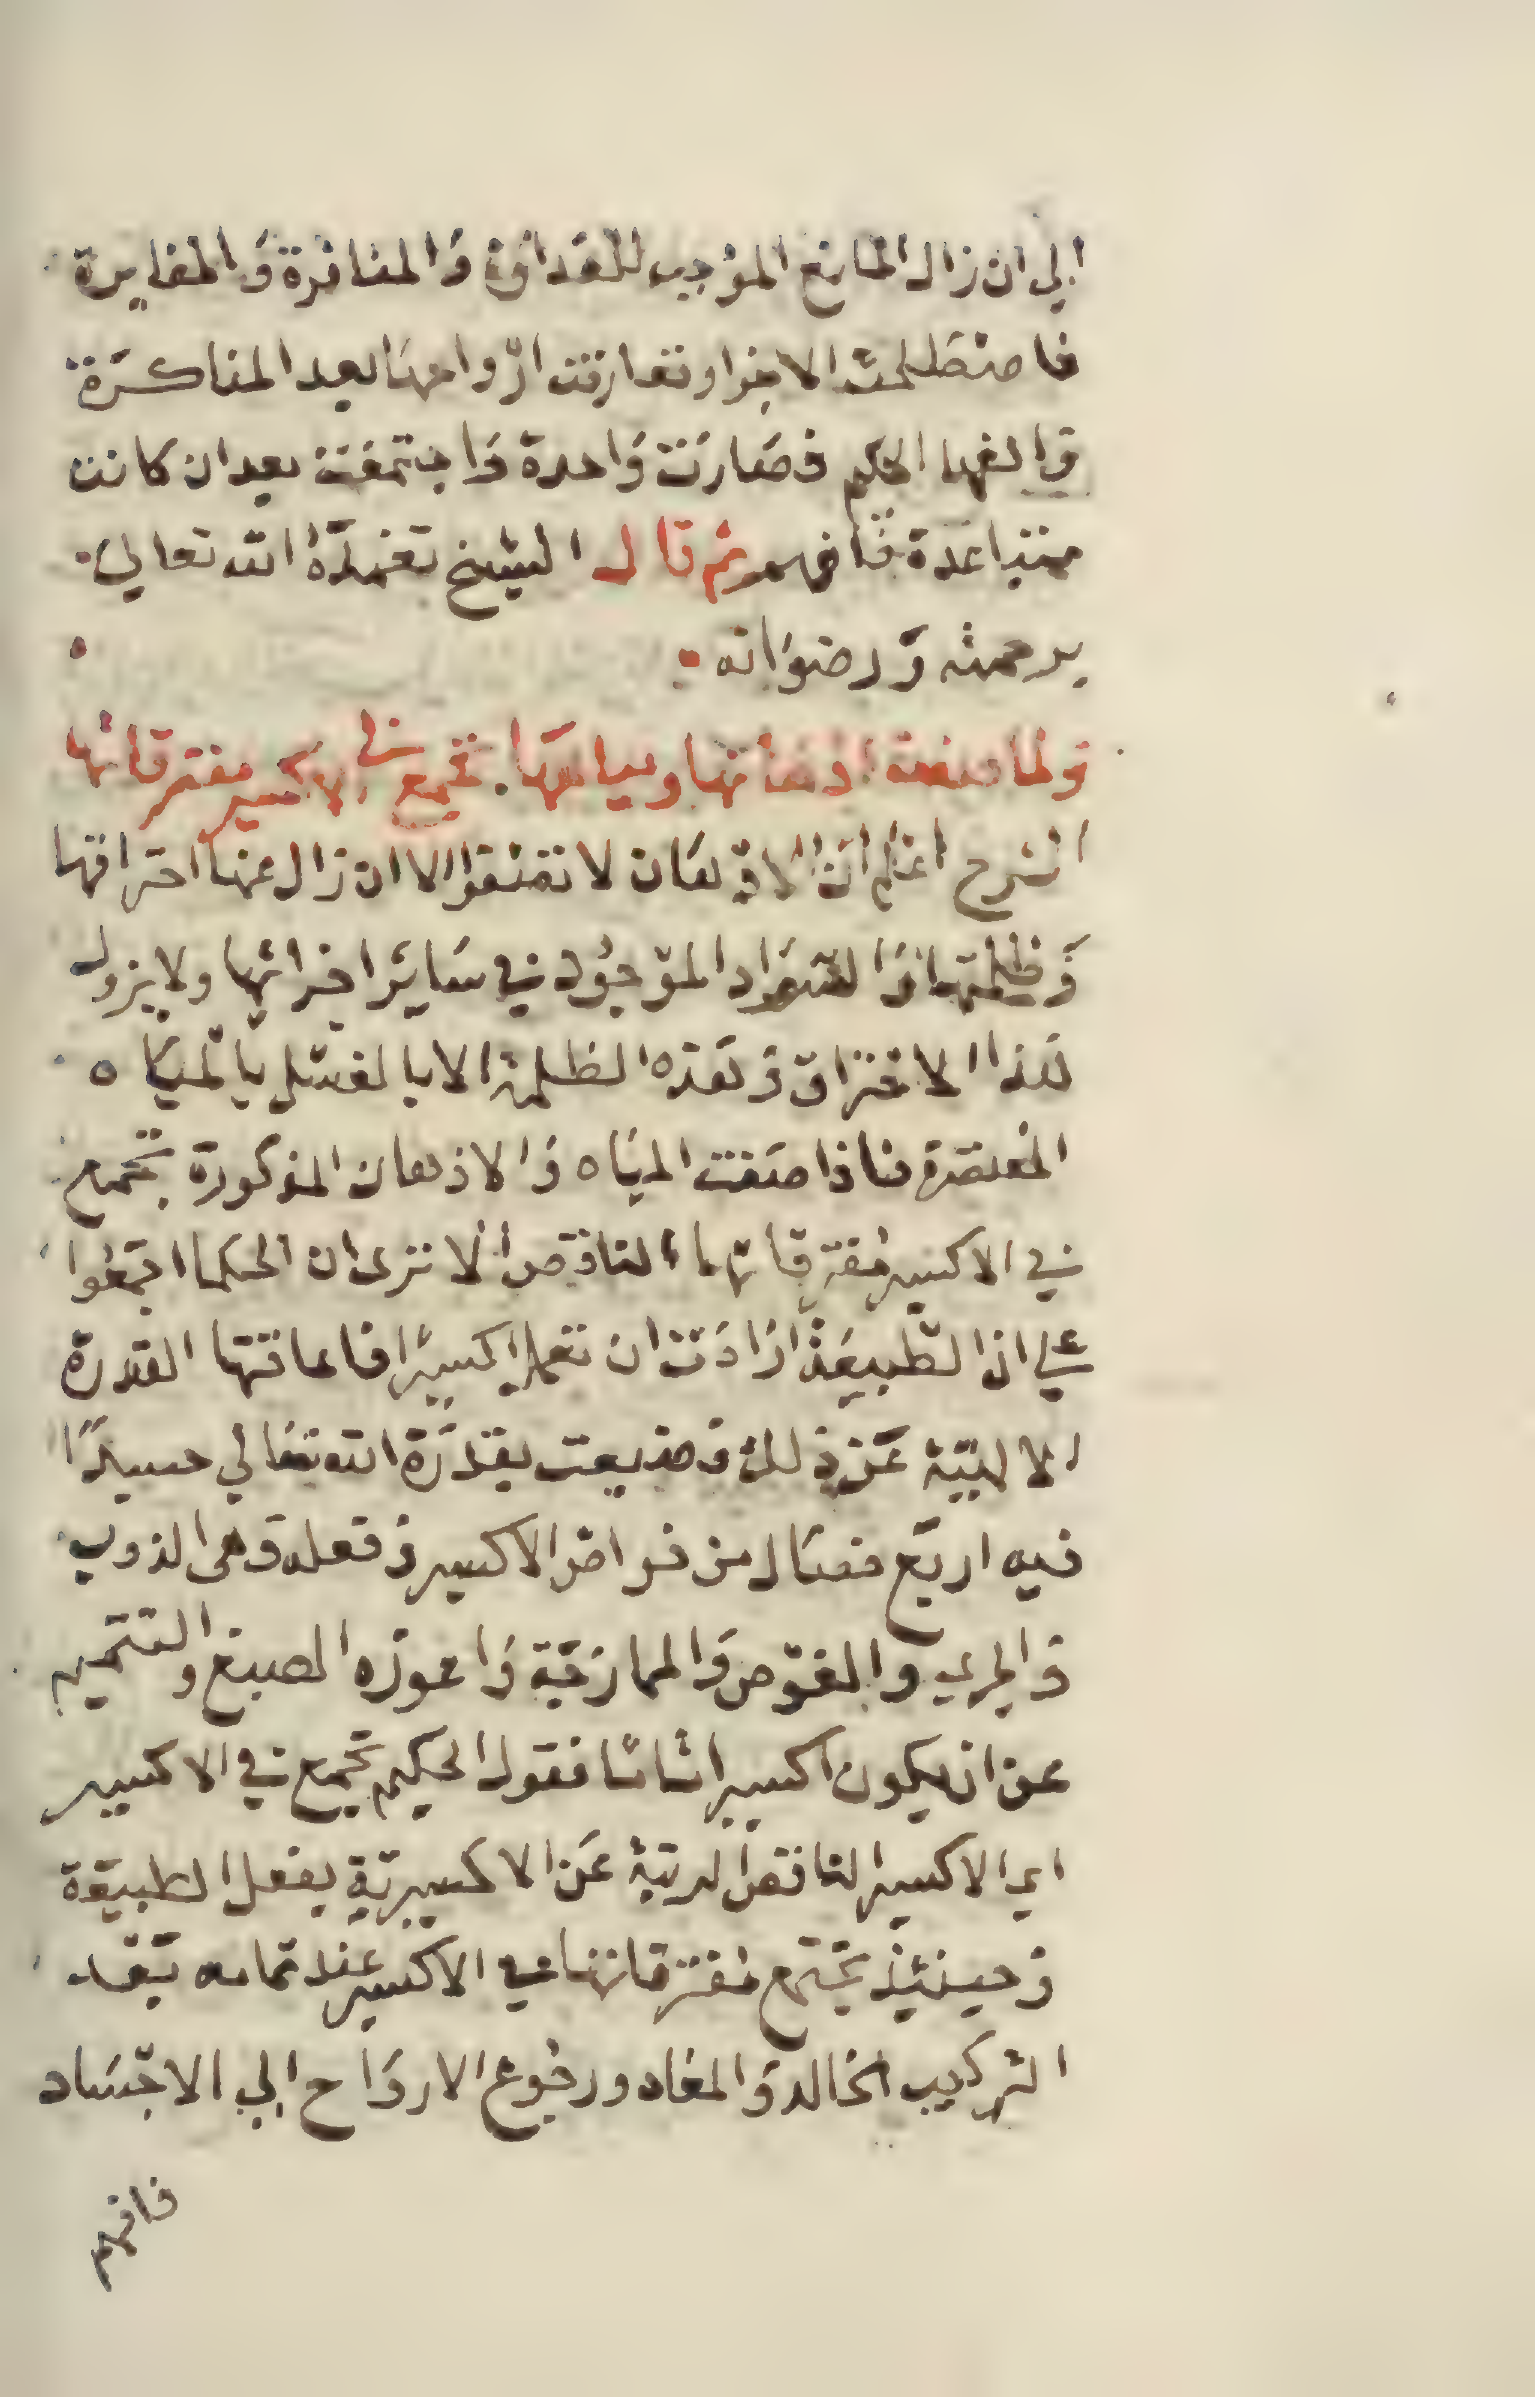 الي ان زال المانع الموجب للعداوة والمنافرة والمغايرة
فاصطلحت الاجزا وتعارفت ارواحها بعد المناكرة
والفها الحكيم فصارت واحدة واجتمعت بعد ان كانت
متباعدة فافهم ثم قال الشيخ تغمده الله تعالي
برحمته ورضوانه
ولما صفت ادهانها ومياهها . تجمع في الاكسير مفترقاتها
الشرح اعلم ان الادهان لا تصفوا الا ان زال عنها احتراقها
وظلمتها والسواد الموجود في ساير اجزائها ولا يزول
هذا الاحتراق وهذه الظلمة الا بالغسل بالمياه
المعتصرة فاذا صفت المياه والادهان المذكورة تجمع
في الاكسير مفترقاتها الناقص الا تري ان الحكما اجمعوا
علي ان الطبيعة ارادت ان تعمل اكسيرا فاعاقتها القدرة
الالهية عن ذلك وصنعت بقدرة الله تعالي جسدا
فيه اربع خصال من خواص الاكسير وفعله وهي الذوب
والجري والغوص والممازجة واعوزه الصبغ والتتميم
عن ان يكون اكسيرا تاما فقول الحكيم تجمع في الاكسير
اي الاكسير الناقص الرتبة عن الاكسيرية بفعل الطبيعة
وحينئذ تجتمع مفترقاتها في الاكسير عند تمامه بعد
التركيب الخالد والمعاد ورجوع الارواح الي الاجساد
فافهم